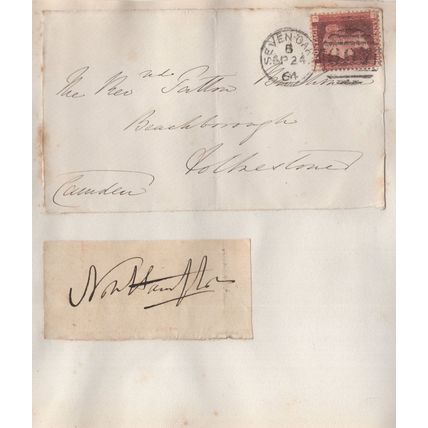 SEVEN-OAKS
B
SP 24
64
The Revd. Tatton Brockman
Beachborough
Folkestone
Camden
Northampton